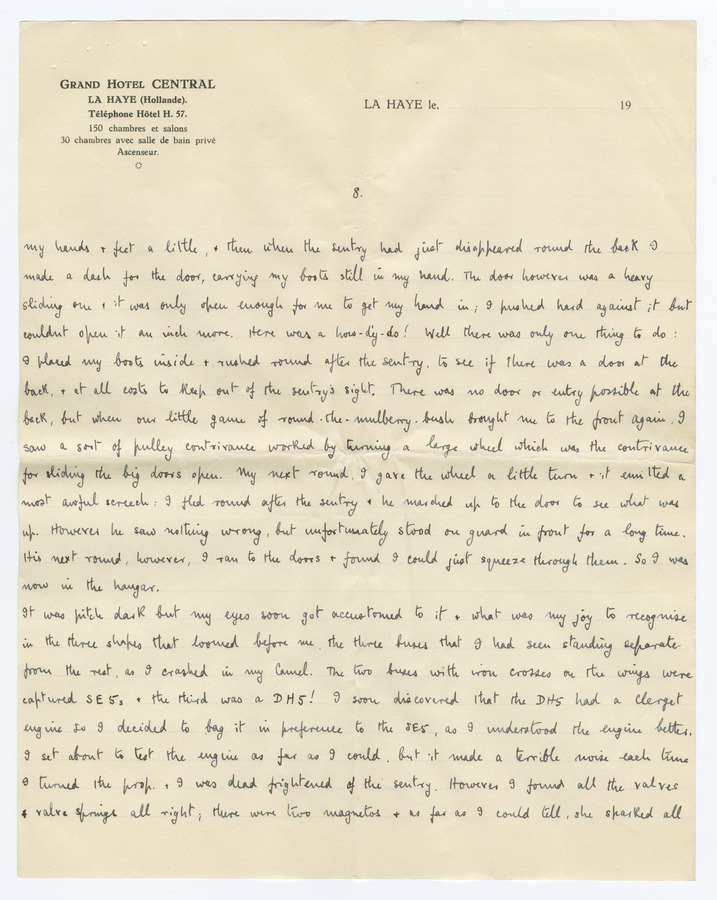 GRAND HOTEL CENTRAL
LA HAYE (Hollande).
Téléphone Hôtel H. 57.
150 chambres et salons
30 chambres avec salle de bain privé
Ascenseur.
LA HAYE le, 19
8.
my hands + feet a little, + then when the sentry had just disappeared round the back I
made a dash for the door, carrying my boots still in my hand. The door however was a heavy
sliding one + it was only open enough for me to get my hand in; I pushed hard against it but
couldnt open it an inch more. Here was a how-dy-do! Well there was only one thing to do:
I placed my boots inside + rushed round after the sentry, to see if there was a door at the
back, + at all costs to keep out of the sentry's sight. There was no door or entry possible at the
back, but when our little game of round-the-mulberry-bush brought me to the front again, I
saw a sort of pulley contrivance worked by turning a large wheel which was the contrivance
for sliding the big doors open. My next round, I gave the wheel a little turn + it emitted a
most awful screech: I fled round after the sentry + he marched up to the door to see what was
up. However he saw nothing wrong, but unfortunately stood on guard in front for a long time.
His next round, however, I ran to the doors + found I could just squeeze through them. So I was
now in the hangar.
It was pitch dark but my eyes soon got accustomed to it + what was my joy to recognise
in the three shapes that loomed before me, the three buses that I had seen standing separate
from the rest, as I crashed in my Camel. The two buses with iron crosses on the wings were
captured SE5s + the third was a DH5! I soon discovered that the DH5 had a Clerget
engine so I decided to bag it in preference to the SE5, as I understood the engine better.
I set about to test the engine as far as I could, but it made a terrible noise each time
I turned the prop. + I was dead frightened of the sentry. However I found all the valves
+ valve springs all right; there were two magnetos + as far as I could tell, she sparked all